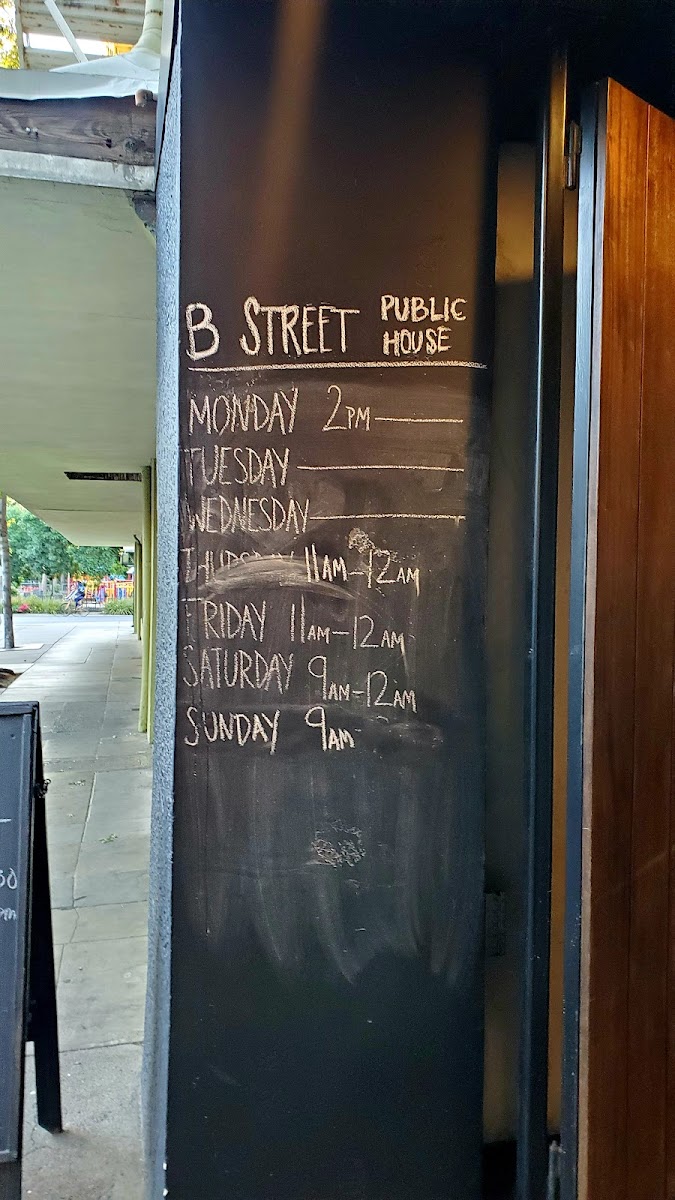 B STREET PUBLIC HOUSE
MONDAY 2PM
TUESDAY
WEDNESDAY
THURSDAY 11AM-12AM
FRIDAY 11AM-12AM
SATURDAY 9AM-12AM
SUNDAY 9AM
30
pm